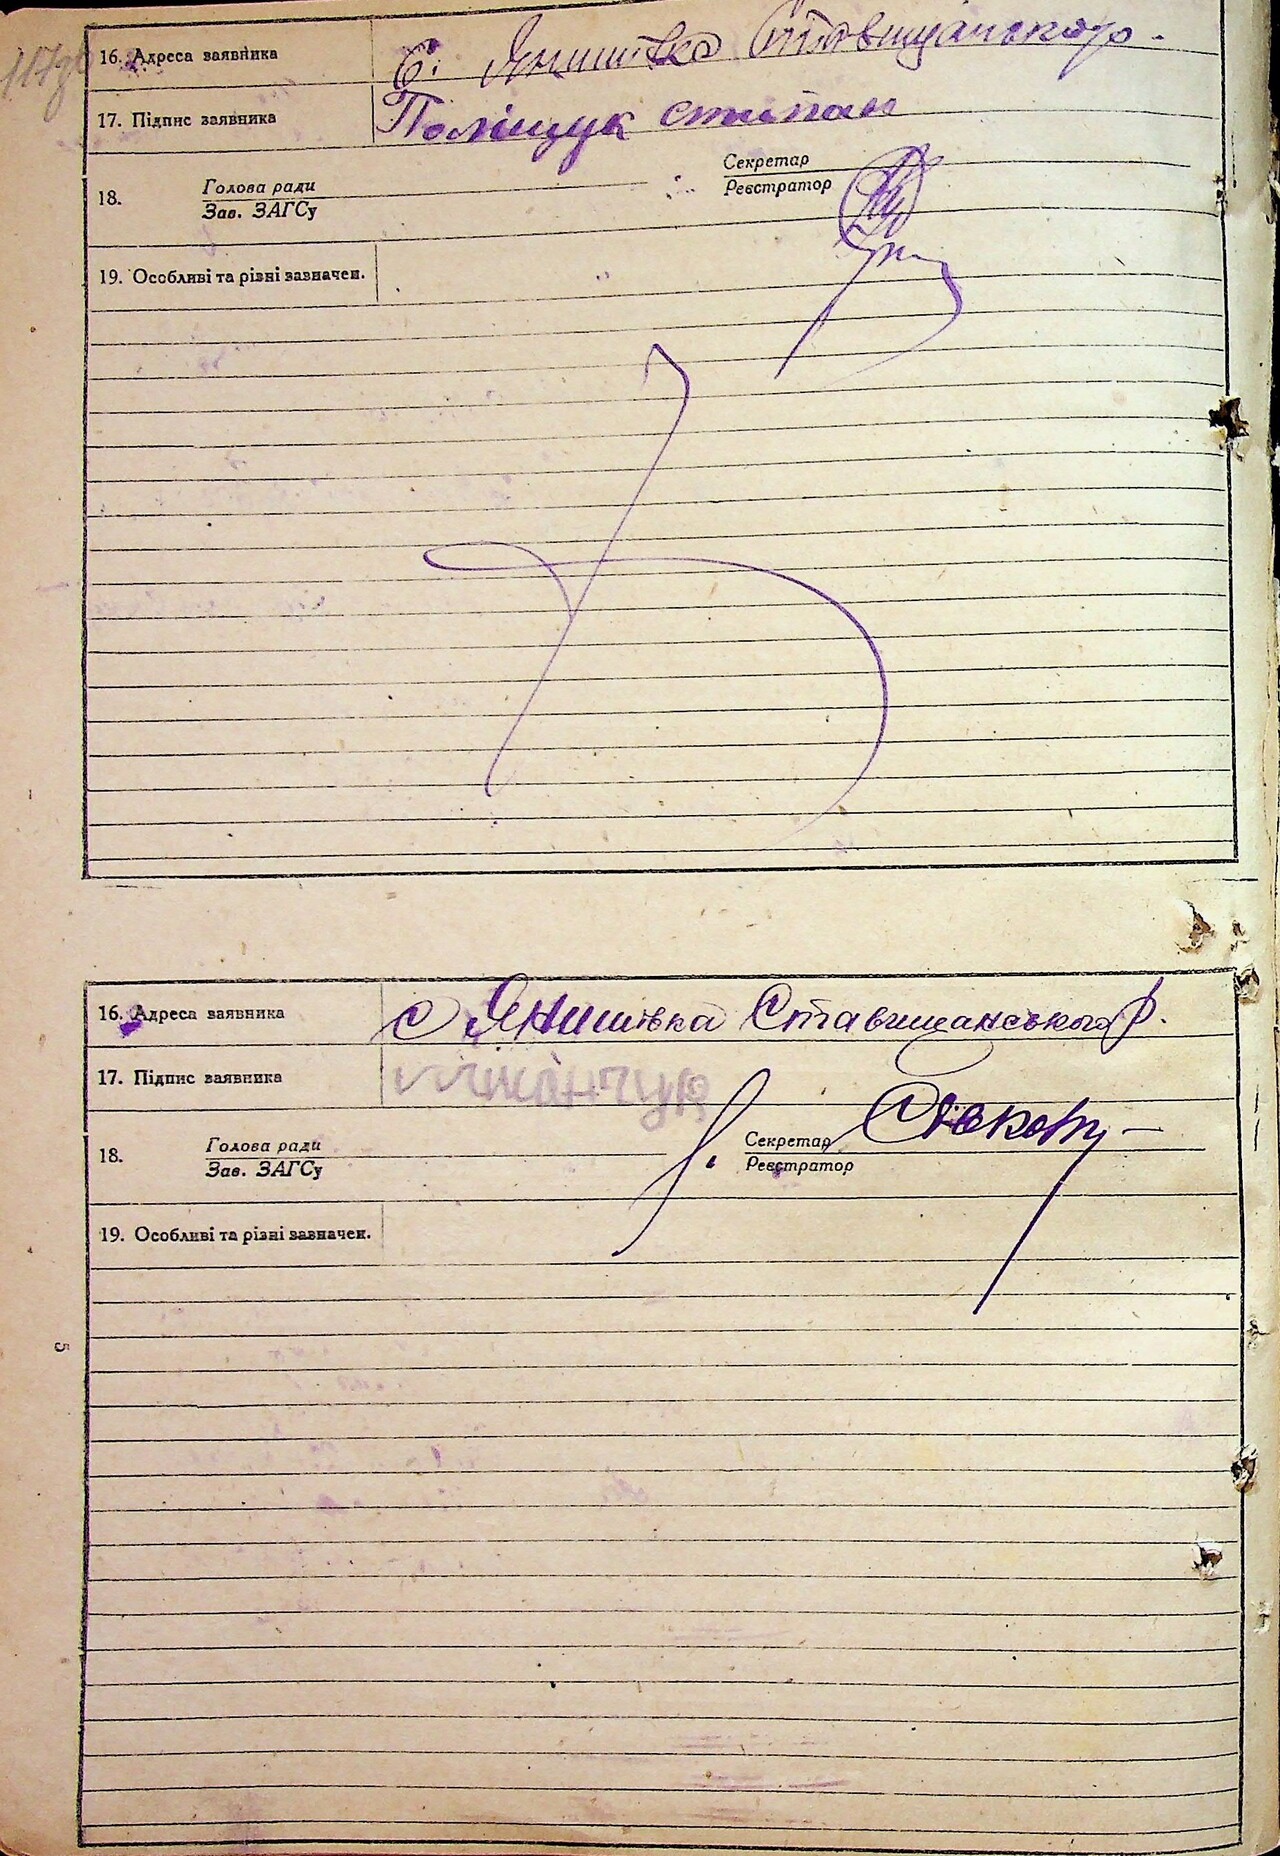 117зв
16. Адреса заявника С. Янишивка Ставищанского р.
17. Підпис заявника Поліщук стипан
Секретар
18. Голова ради Реєстратор
Зав. ЗАГСу
19. Особливі та різні зазначен.
16. Адреса заявника с Янишівка Ставищанського р.
17. Підпис заявника
18. Голова ради Секретар
Зав. ЗАГСу Реєстратор
19. Особливі та різні зазначен.
5